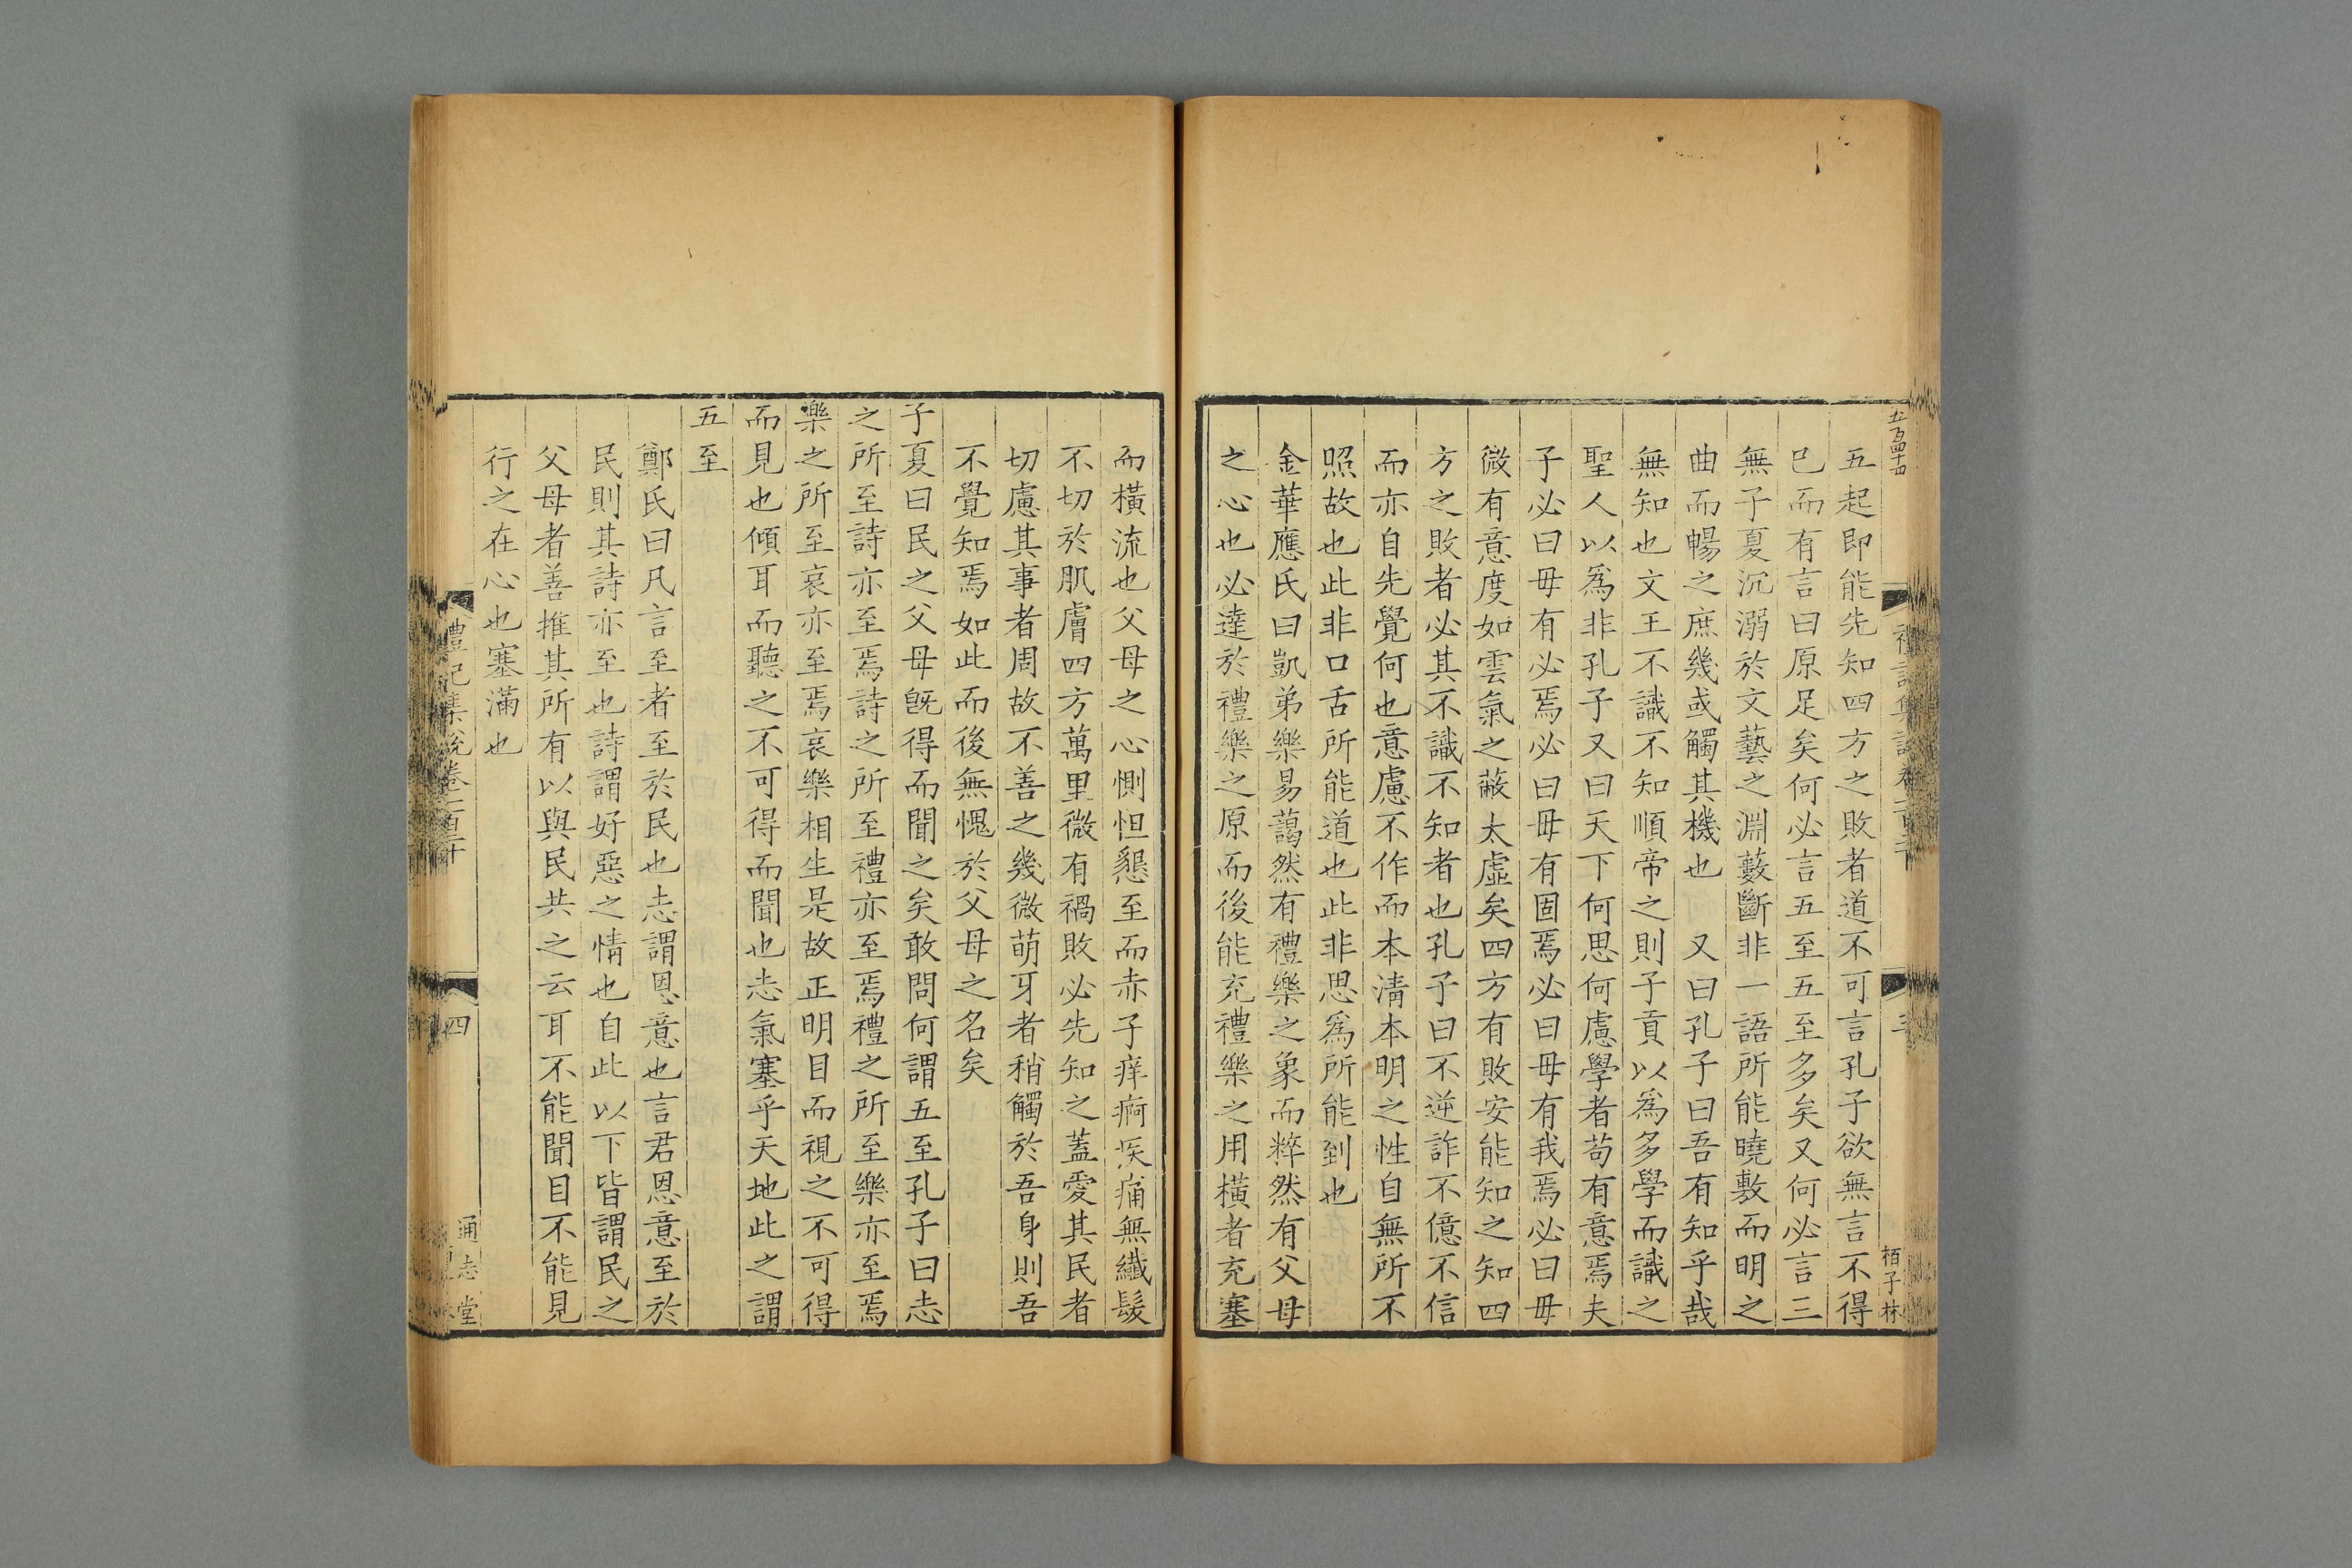 五起即能先知四方之敗者道不可言孔子欲無言不得
已而有言曰原足矣何必言五至五至多矣又何必言三
無子夏沉溺於文藝之淵藪斷非一語所能曉敷而明之
曲而暢之庶幾或觸其機也 又曰孔子曰吾有知乎哉
無知也文王不識不知順帝之則子貢以為多學而識之
聖人以為非孔子又曰天下何思何慮學者苟有意焉夫
子必曰毋有必焉必曰毋有固焉必曰毋有我焉必曰毋
微有意度如雲氣之蔽太虛矣四方有敗安能知之知四
方之敗者必其不識不知者也孔子曰不逆詐不億不信
而亦自先覺何也意慮不作而本清本明之性自無所不
照故也此非口舌所能道也此非思為所能到也
金華應氏曰凱弟樂易藹然有禮樂之象而粹然有父母
之心也必達於禮樂之原而後能充禮樂之用橫者充塞
栢子林
而橫流也父母之心惻怛懇至而赤子痒痾疾痛無纎髮
不切於肌膚四方萬里微有禍敗必先知之蓋愛其民者
切慮其事者周故不善之幾微萌牙者稍觸於吾身則吾
不覺知焉如此而後無愧於父母之名矣
子夏曰民之父母旣得而聞之矣敢問何謂五至孔子曰志
之所至詩亦至焉詩之所至禮亦至焉禮之所至樂亦至焉
樂之所至哀亦至焉哀樂相生是故正明目而視之不可得
而見也傾耳而聽之不可得而聞也志氣塞乎天地此之謂
五至
鄭氏曰凡言至者至於民也志謂恩意也言君恩意至於
民則其詩亦至也詩謂好惡之情也自此以下皆謂民之
父母者善推其所有以與民共之云耳不能聞目不能見
行之在心也塞滿也
禮記集說卷一百二十
四
通志堂